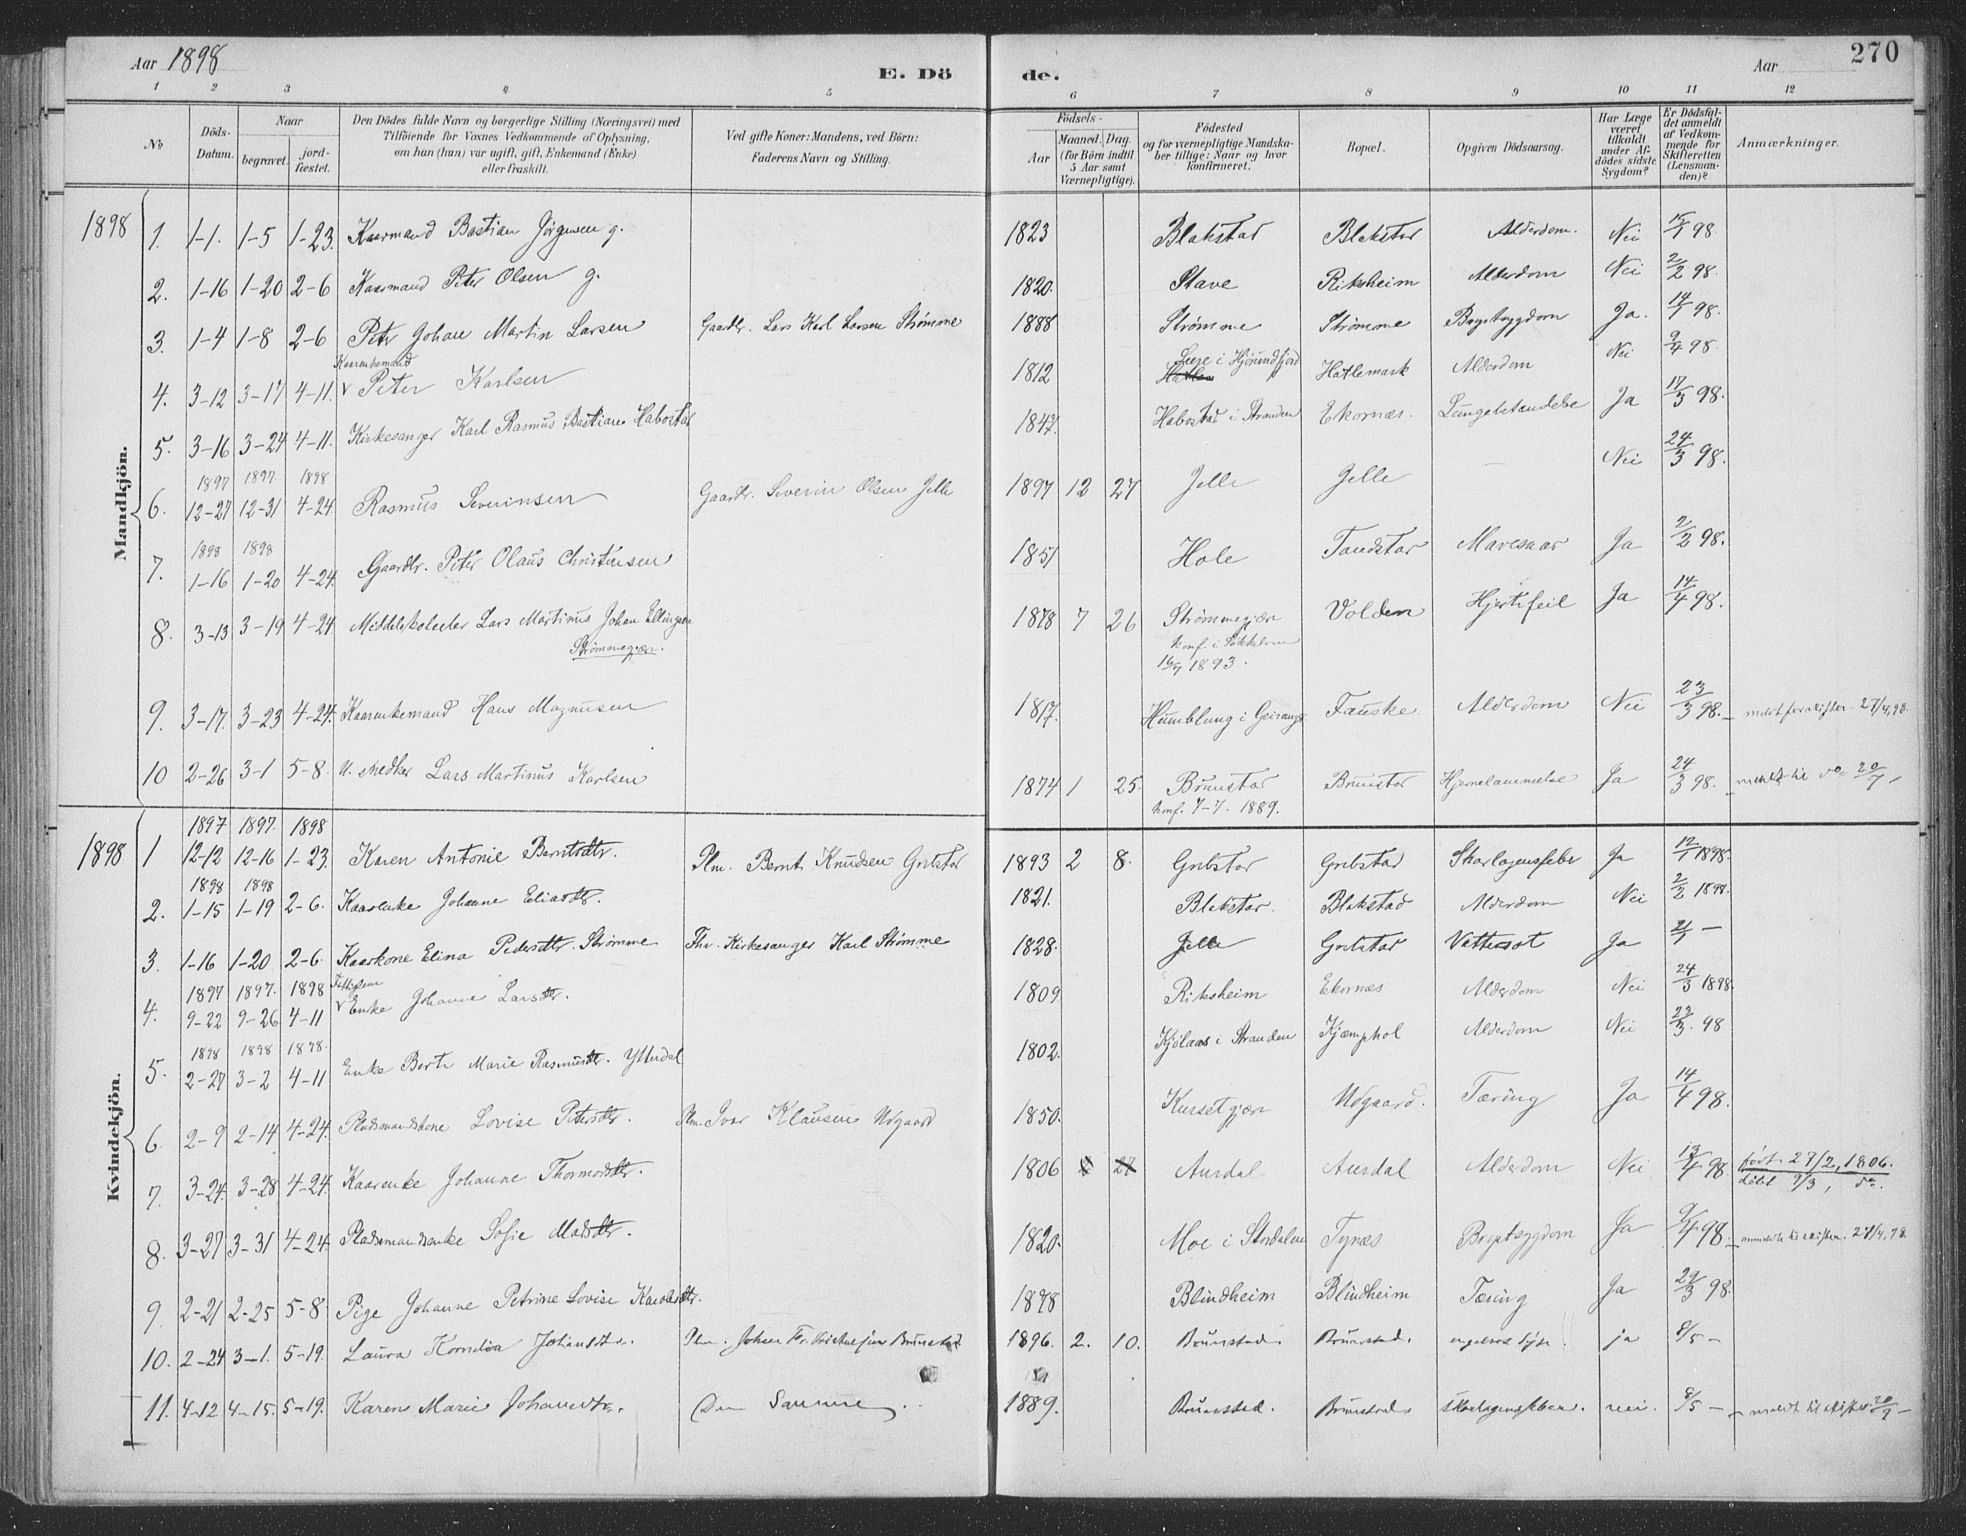 Aar 1898 E. Dö de. Aar 270
1 2 3 4 5 6 7 8 9 10 11 12
No
Döds-Datum.
Naar
begravet.
jord-fæstet.
Den Dödes fulde Navn og borgerlige Stilling (Næringsvei) med
Tilföiende for Voxnes Vedkommende af Oplysning,
om han (hun) var ugift, gift, Enkemand (Enke)
eller fraskilt.
Ved gifte Koner: Mandens, ved Börn:
Faderens Navn og Stilling.
Födsels-
Aar
Maaned.
Dag.
(for Börn indtil
5 Aar samt
Værnepligtige).
Födested
og for værnepligtige Mandska-
ber tillige: Naar og hvor
konfirmeret.
Bopæl.
Opgiven Dödsaarsag.
Har Læge
været
tilkaldt
under Af-
dödes sidste
Sygdom?
Er Dödsfal-
det anmeldt
af Vedkom-
mende for
Skifteretten
(Lensman-
den)?
Anmærkninger.
Mandkjön.
1898 1. 1-1. 1-5 1-23. Kaarmand Bastian Jørgensen g. 1823 Blakstad Blakstad Alderdom. Nei 15/1 98.
2. 1-16 1-20 2-6 Kaarmand Peter Olsen g. 1820. Stave Riksheim Alderdom Nei 2/2 98.
3. 1-4 1-8 2-6 Petr Johan Martin Larsen Gaardbr. Lars Karl Larsen Strømme 1888 Strømme Strømme Brystsygdom Ja. 14/1 98.
Kaarenkemand
4. 3-12 3-17 4-11. v Peter Karlsen 1812 i Hjørundfjord Hatlemark Alderdom Nei 9/4 98.
5. 3-16 3-24 4-11. Kirkesanger Karl Rasmus Bastians Habostad 1847. Habostad i Stranden Ekornæs. Lungebetændelse Ja 17/3 98.
1897 1897 1898
6. 12-27 12-31 4-24. Rasmus Severinsen Gaardbr. Severin Olsen Jelle 1897 12 27 Jelle Jelle — Nei 24/3 98.
1898 1898
7. 1-16 1-20 4-24. Gaardbr. Peter Olaus Christensen 1851 Hole Tandstad Mavesaar Ja 2/2 98.
8. 3-13 3-19 4-24 Middelskoleelev Lars Martinus Johan Ellingsen
Strømmegjær.
1878 7 26 Strømmegjær Volden Hjertefeil Ja 14/4 98.
konf. i Søkkelven
16/7 1893.
9. 3-17. 3-23 4-24. Kaarenkemand Hans Magnusen 1817. Humblung i Geiranger Fauske. Alderdom Nei 23/3 98. – meldt for skifter. 27/4, 98.
10 2-26 3-1 5-8. U. snedker Lars Martinus Karlsen 1874 1 25. Brunstad Brunstad Hjernelammelse Ja 24/3 98. – meldt til do 20/7 –
konf. 7-7. 1889.
Kvindekjön.
1897 1897. 1898
1898 1 12-12 12-16 1-23. Karen Antonie Berntsdtr. Plm. Bernt Knudsen Grebstad 1893 2 8. Grebstad Grebstad Skarlagensfeber Ja 12/1 1898.
1898 1898
2. 1-15 1-19 2-6. Kaarenke Johanne Eliasdtr. 1821. Blakstad. Blakstad Alderdom Nei 2/2 1898.
3. 1-16 1-20 2-6. Kaarkone Elina Pedersdtr. Strømme Fhv. Kirkesanger Karl Strømme 1828. Jelle Grebstad Vattersot Ja 21/1 —
1897 1897. 1898
4. 9-22 9-26 4-11 v Enke Johanne Larsdtr. 1809 Riksheim Ekornæs Alderdom Nei 24/3 1898.
1898 1898 1898.
5. 2-27 3-2 4-11 Enke Berte Marie Rasmusdtr. Ytterdal 1802. Kjølaas i Stranden Kjæmphol Alderdom Nei 23/3. 98
6. 2-9 2-14 4-24. Pladsmandskone Lovise Petersdtr. Plm. Ivar Klausen Urgaard 1850. Kursetgjær Urgaard. Tæring Ja 14/4 98.
7. 3-24. 3-28 4-24. Kaarenke Johanne Thormodsdtr. 1806 27 Aursdal Aursdal Alderdom Nei 13/4 98. født 27/2, 1806.
døbt 9/3, do.
8. 3-27 3-31 4-24. Pladsmandsenke Sofie Madsdtr. 1820. Moe i Stordalen Tynæs Brystsygdom Ja 9/4 98. – anmeldt til skifter. 27/4, 98.
9. 2-21 2-25 5-8. Pige Johanne Petrine Lovise Karolusdtr. 1878 Blindheim Blindheim Tæring Ja 29/3 98.
10. 2-24 3-1. 5-19. Laura Kornelia Johansdtr. Plm. Johan Fr. Brunstad. 1896. 2. 10. Brunstad. Brunstad. engelsk syge. ja 8/5 –
11. 4-12 4-15. 5-19. Karen Marie Johansdtr. Den Samme. 1889. Brunstad. Brunstad. skarlagensfeber. nei. 8/5 – – meldt til skifter 20/7 –